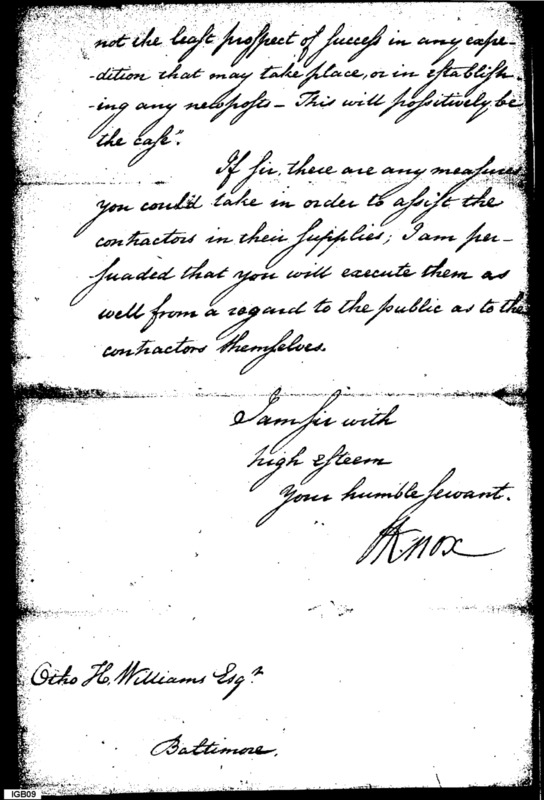 not the least prospect of success in any expe-
-dition that may take place, or in establish-
-ing any new posts - This will possitively be
the case".
If sir, there are any measures
you could take in order to assist the
contractors in their supplies; I am per-
suaded that you will execute them as
well from a regard to the public as to the
contractors themselves.
I am sir with
high esteem
Your humble servant.
HKnox
Otho H. Williams Esqr
Baltimore.
IGB09